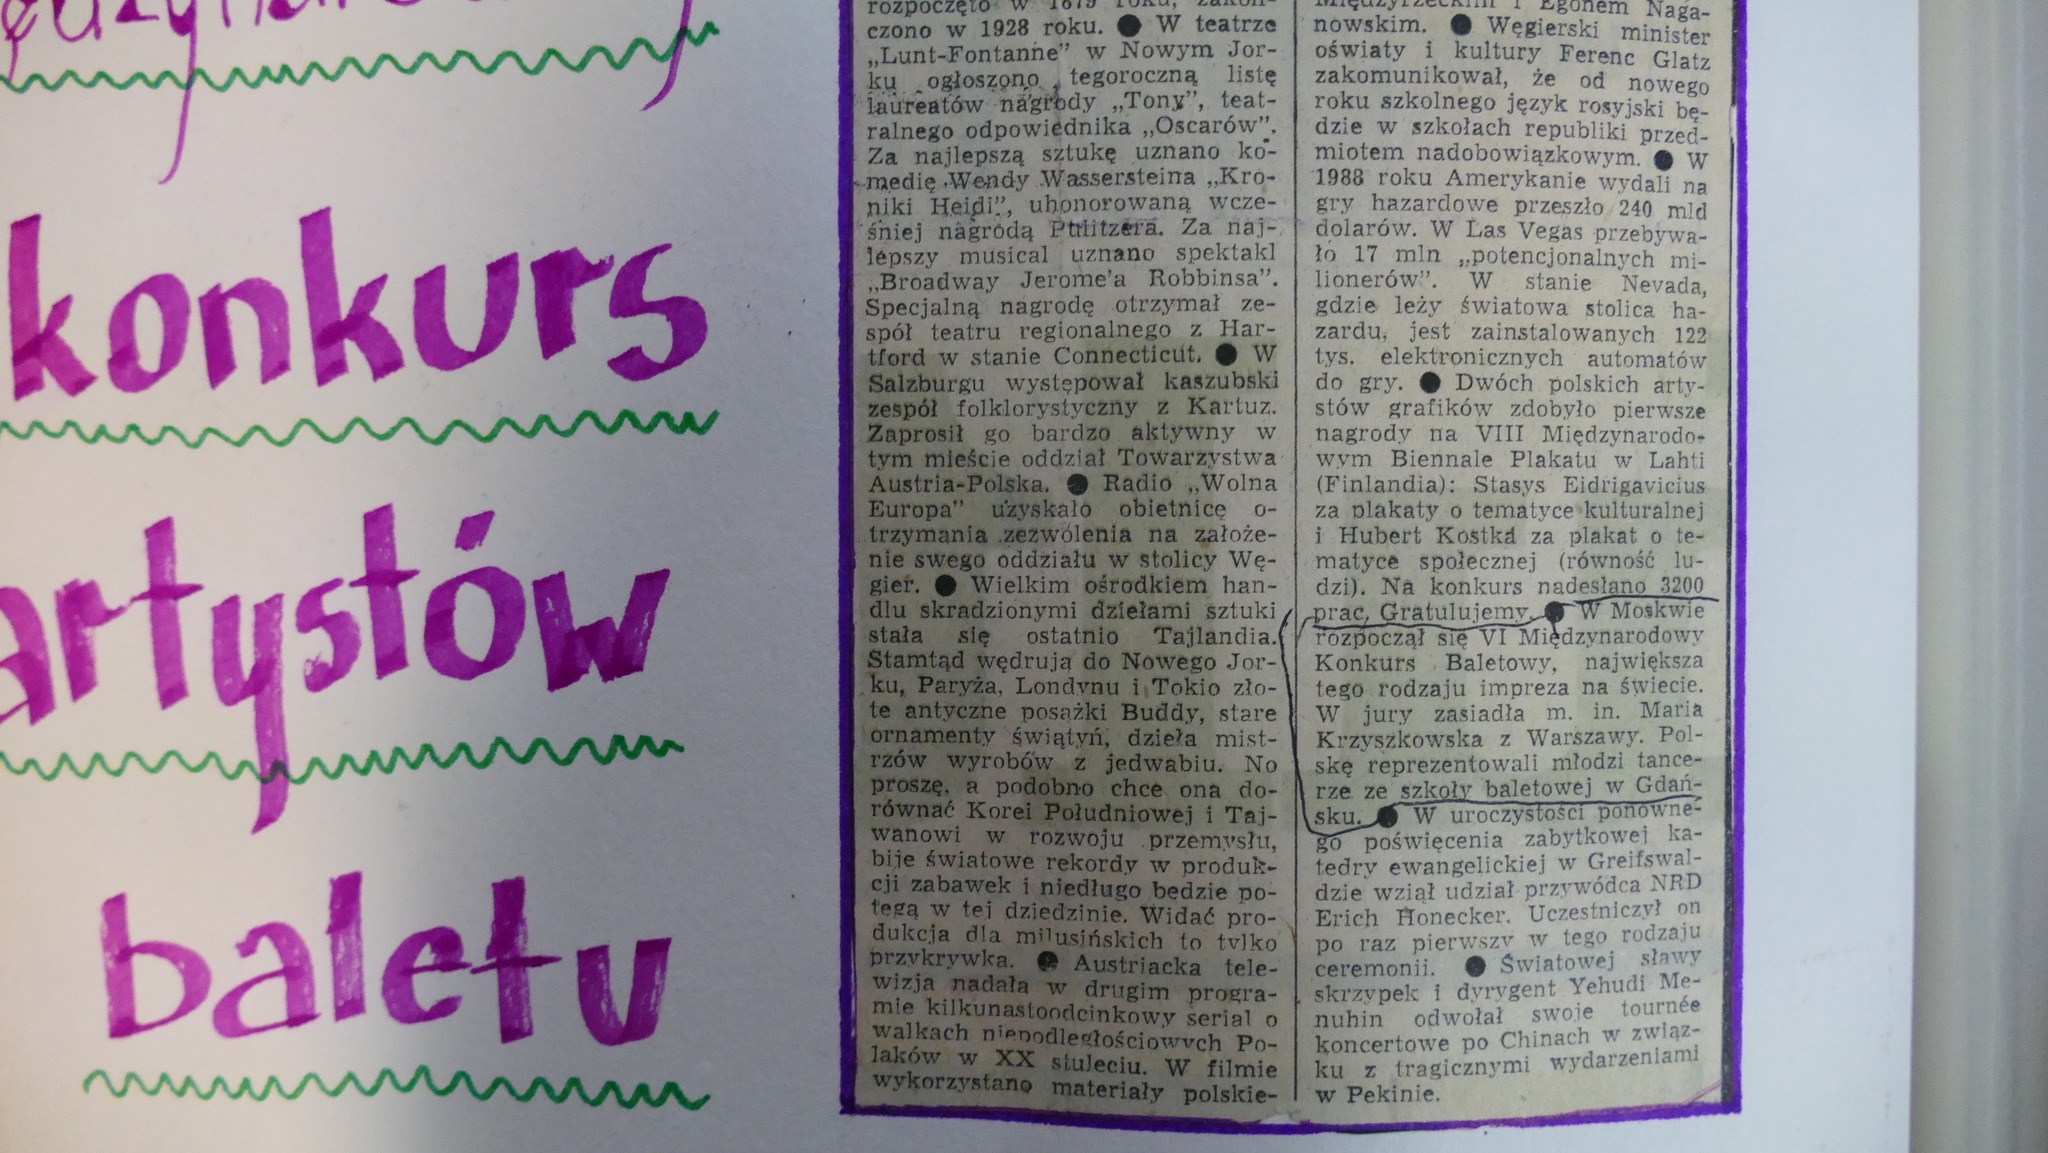 konkurs
artystów
baletu
rozpoczęto w 1879 roku, zakoń-
czono w 1928 roku. ● W teatrze
„Lunt-Fontanne” w Nowym Jor-
ku ogłoszono tegoroczną listę
laureatów nagrody „Tony”, teat-
ralnego odpowiednika „Oscarów”.
Za najlepszą sztukę uznano ko-
medię Wendy Wassersteina „Kro-
niki Heidi”, uhonorowaną wcze-
śniej nagrodą Pulitzera. Za naj-
lepszy musical uznano spektakl
„Broadway Jerome'a Robbinsa”.
Specjalną nagrodę otrzymał ze-
spół teatru regionalnego z Har-
tford w stanie Connecticut. ● W
Salzburgu występował kaszubski
zespół folklorystyczny z Kartuz.
Zaprosił go bardzo aktywny w
tym mieście oddział Towarzystwa
Austria-Polska. ● Radio „Wolna
Europa” uzyskało obietnicę o-
trzymania zezwolenia na założe-
nie swego oddziału w stolicy Wę-
gier. ● Wielkim ośrodkiem han-
dlu skradzionymi dziełami sztuki
stała się ostatnio Tajlandia.
Stamtąd wędrują do Nowego Jor-
ku, Paryża, Londynu i Tokio zło-
te antyczne posążki Buddy, stare
ornamenty świątyń, dzieła mist-
rzów wyrobów z jedwabiu. No
proszę, a podobno chce ona do-
równać Korei Południowej i Taj-
wanowi w rozwoju przemysłu,
bije światowe rekordy w produk-
cji zabawek i niedługo będzie po-
tęgą w tej dziedzinie. Widać pro-
dukcja dla milusińskich to tylko
przykrywka. ● Austriacka tele-
wizja nadała w drugim progra-
mie kilkunastoodcinkowy serial o
walkach niepodległościowych Po-
laków w XX stuleciu. W filmie
wykorzystano materiały polskie-
Międzyrzeckim i Egonem Naga-
nowskim. ● Węgierski minister
oświaty i kultury Ferenc Glatz
zakomunikował, że od nowego
roku szkolnego język rosyjski bę-
dzie w szkołach republiki przed-
miotem nadobowiązkowym. ● W
1988 roku Amerykanie wydali na
gry hazardowe przeszło 240 mld
dolarów. W Las Vegas przebywa-
ło 17 mln „potencjonalnych mi-
lionerów”. W stanie Nevada,
gdzie leży światowa stolica ha-
zardu, jest zainstalowanych 122
tys. elektronicznych automatów
do gry. ● Dwóch polskich arty-
stów grafików zdobyło pierwsze
nagrody na VIII Międzynarodo-
wym Biennale Plakatu w Lahti
(Finlandia): Stasys Eidrigavicius
za plakaty o tematyce kulturalnej
i Hubert Kostka za plakat o te-
matyce społecznej (równość lu-
dzi). Na konkurs nadesłano 3200
prac. Gratulujemy. ● W Moskwie
rozpoczął się VI Międzynarodowy
Konkurs Baletowy, największa
tego rodzaju impreza na świecie.
W jury zasiadła m. in. Maria
Krzyszkowska z Warszawy. Pol-
skę reprezentowali młodzi tance-
rze ze szkoły baletowej w Gdań-
sku. ● W uroczystości ponowne-
go poświęcenia zabytkowej ka-
tedry ewangelickiej w Greifswal-
dzie wziął udział przywódca NRD
Erich Honecker. Uczestniczył on
po raz pierwszy w tego rodzaju
ceremonii. ● Światowej sławy
skrzypek i dyrygent Yehudi Me-
nuhin odwołał swoje tournée
koncertowe po Chinach w związ-
ku z tragicznymi wydarzeniami
w Pekinie.